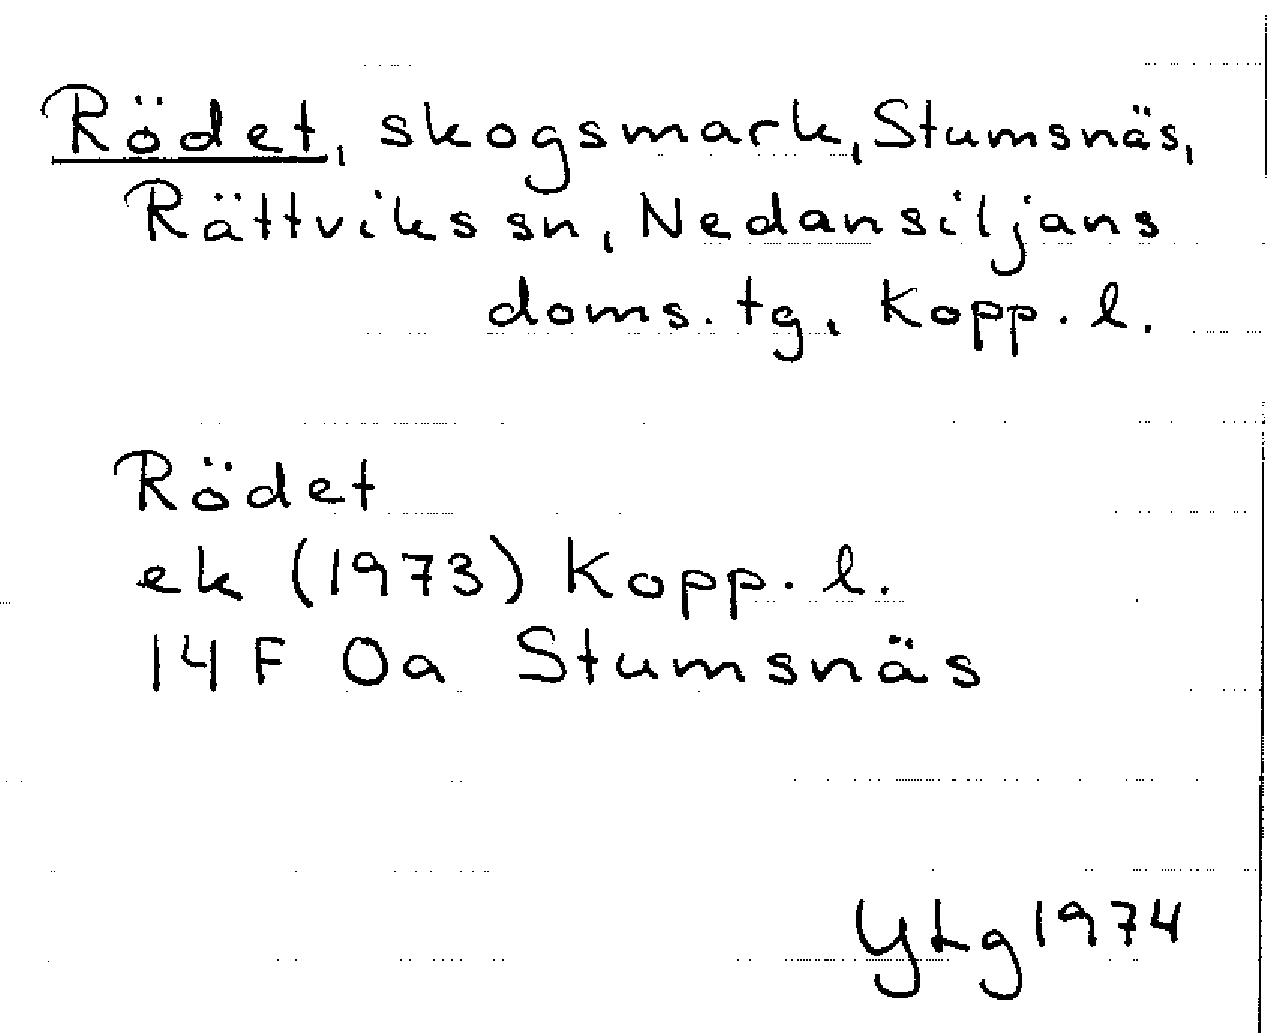 Rödet, skogsmark, Stumsnäs,
Rättviks sn, Nedansiljans
doms. tg, Kopp. l.
Rödet
ek (1973) Kopp. l.
14 F 0a Stumsnäs
YLg 1974